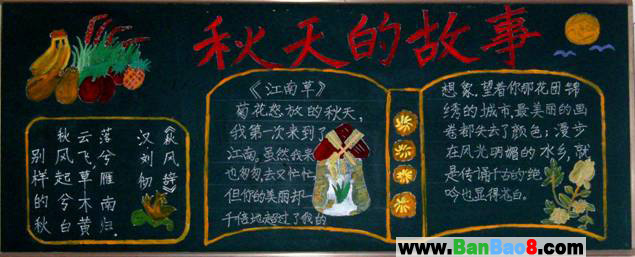 秋天的故事
《秋风辞》
汉刘彻
落兮雁南归
云飞草木黄
秋风起兮白
别样的秋
《江南草》
菊花怒放的秋天,
我第一次来到了
江南。虽然我来
匆匆,去又忙忙
但你的美丽却一
千倍地超过了我的
想象。望着你那花团锦
绣的城市,最美丽的画
卷都失去了颜色;漫步
在风光明媚的水乡,就
是传诵千古的绝
吟也显得苍白。
www.BanBao8.com